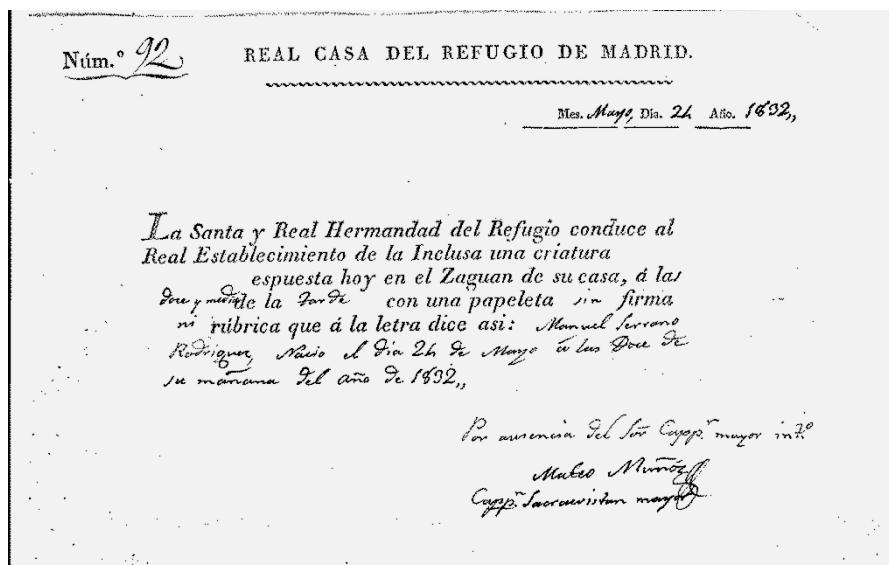 Núm.º 92
REAL CASA DEL REFUGIO DE MADRID.
Mes. Mayo, Dia. 24 Año. 1832,,
La Santa y Real Hermandad del Refugio conduce al
Real Establecimiento de la Inclusa una criatura
espuesta hoy en el Zaguan de su casa, á las
doce y media de la Tarde con una papeleta sin firma
ni rúbrica que á la letra dice asi: Manuel Serrano
Rodriguez, Nacio el dia 24 de Mayo a las Doce de
su mañana del año de 1832,,
Por ausencia del Sor Cappn mayor intº
Mateo Muñoz
Cappn Sacravistan mayor